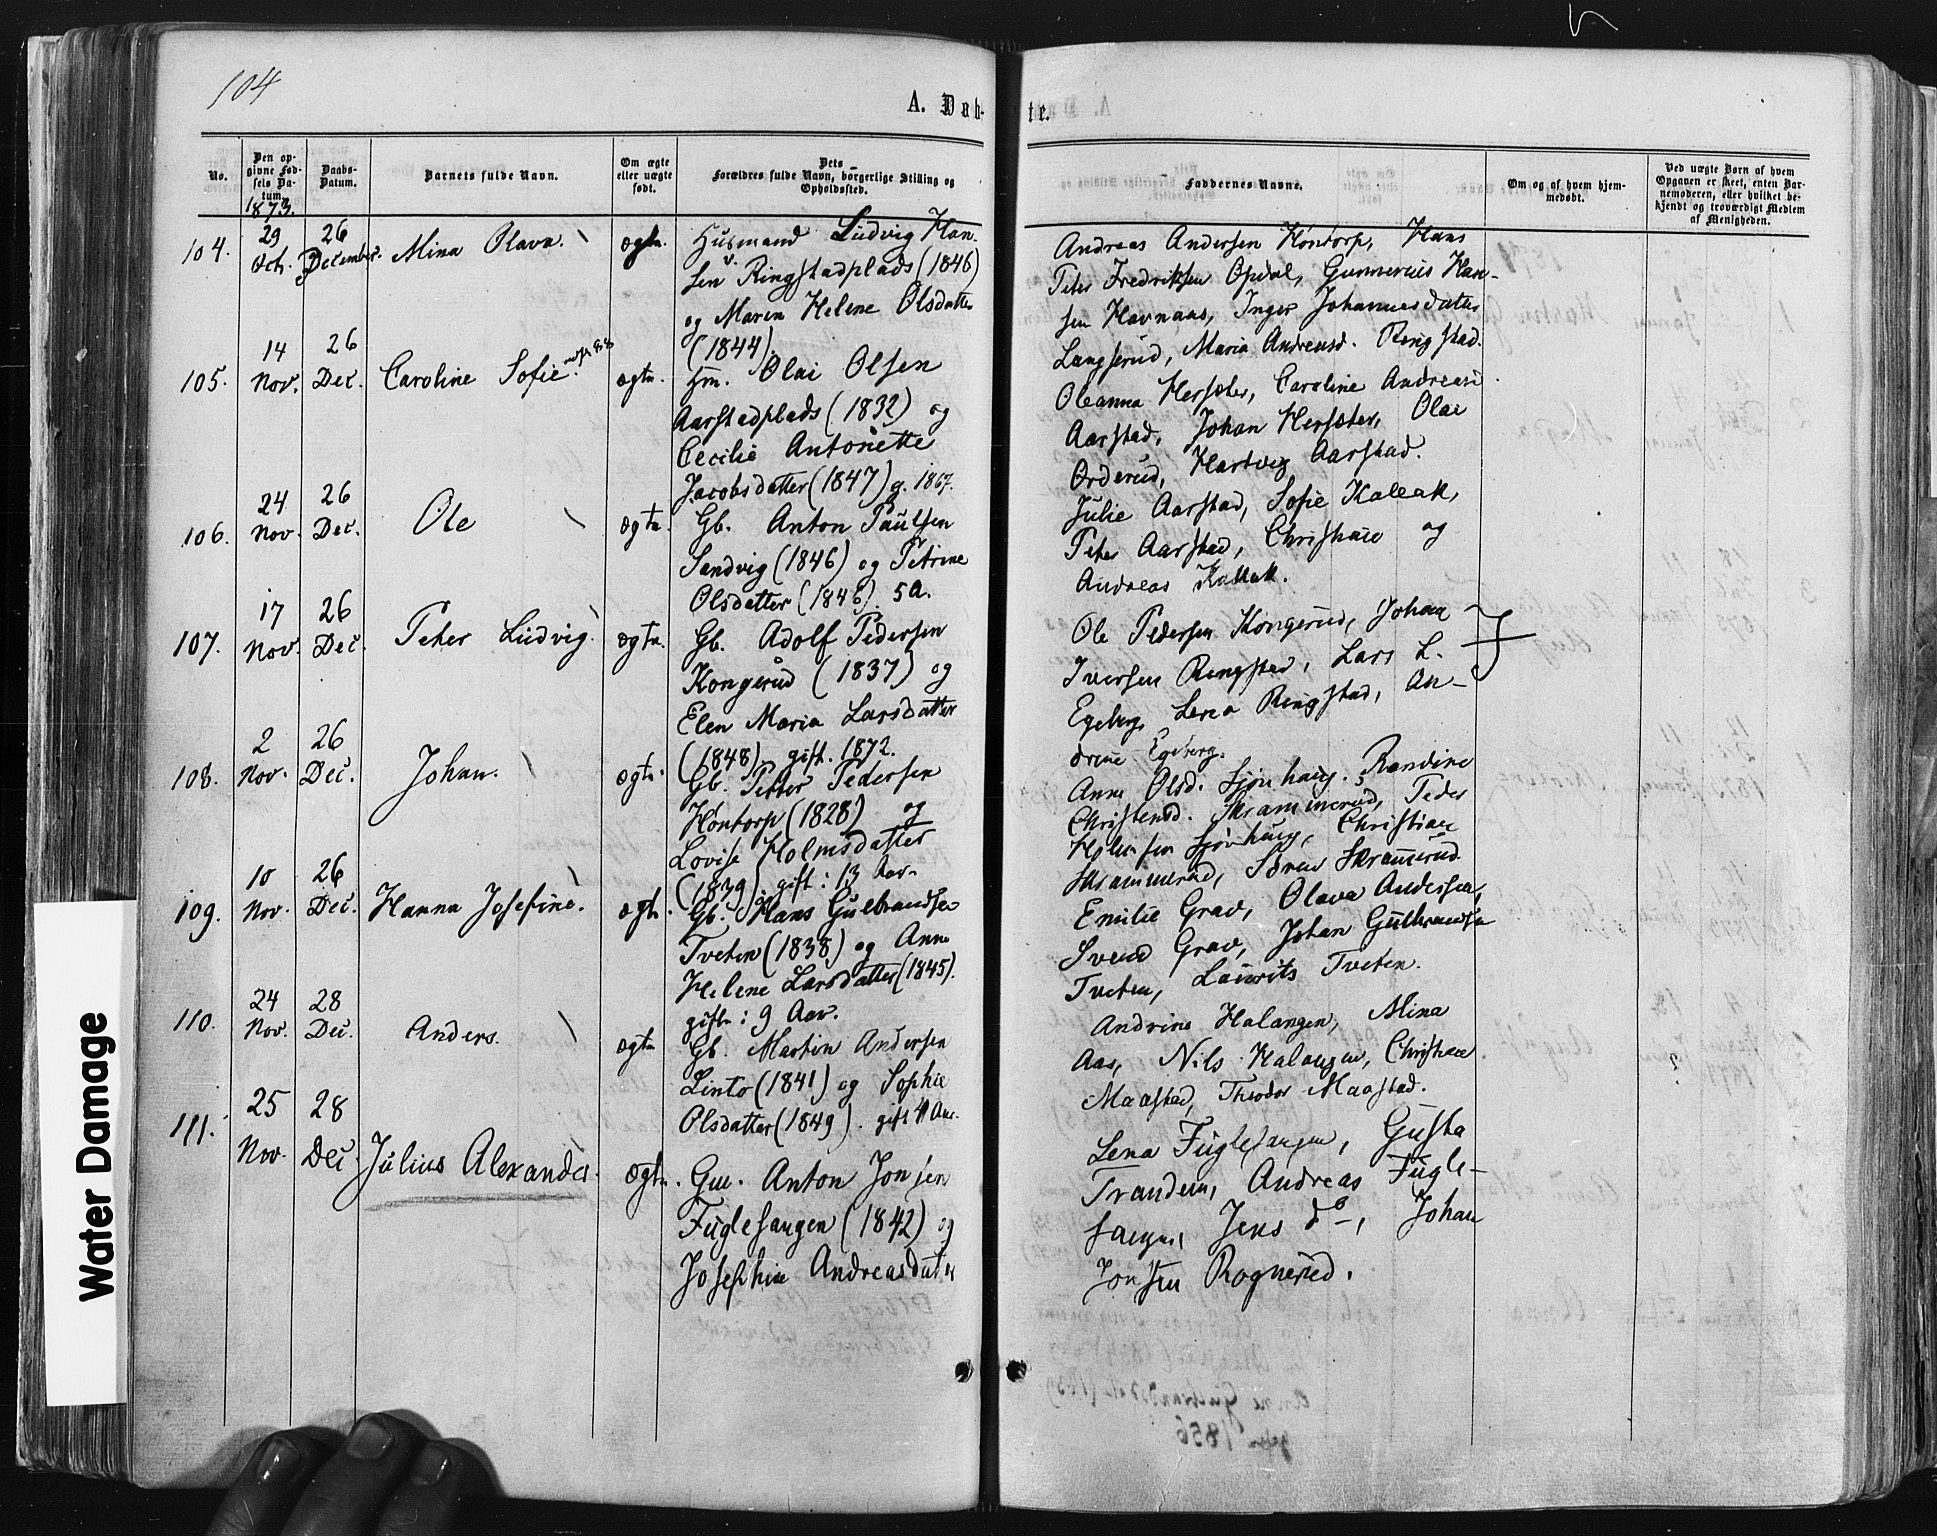 104
A. Døb-
te.
No.
Den op-
givne Fød-
sels Da-
tum.
1873.
Daabs-
Datum.
Barnets fulde Navn.
Om ægte
eller uægte
født.
Dets
Forældres fulde Navn, borgerlige Stilling og
Opholdssted.
Faddernes Navne.
Om og af hvem hjem-
medøbt.
Ved uægte Børn af hvem
Opgaven er skeet, enten Bar-
nemoderen, eller hvilket be-
kjendt og troværdigt Medlem
af Menigheden.
104.
29
Oct.
26
December.
Mina Olava.
ægte.
Husmand Ludvig Han-
sen Ringstadplads (1846)
og Maren Helene Olsdatter
(1844)
Andreas Andersen Kontorp, Hans
Peter Fredriksen Opdal, Gunnerius Han-
sen Havnaas, Inger Johannesdatter
Langserud, Maria Andreasd. Ringstad.
105.
14
Nov.
26
Dec.
Caroline Sofie.
ægte.
Hm. Olai Olsen
Aarstadplads (1832) og
Cecilie Antonette
Jacobsdatter (1847) g. 1867.
Oleanna Hersæter, Caroline Andreasd.
Aarstad, Johan Hersæter, Olai
Orderud, Hartvig Aarstad.
106.
24
Nov.
26
Dec.
Ole
ægte.
Gb. Anton Paulsen
Sandvig (1846) og Petrine
Olsdatter (1848). 5 A.
Julie Aarstad, Sofie Kallak,
Peter Aarstad, Christiane og
Andreas Kallak.
107.
17
Nov.
26
Dec.
Peter Ludvig.
ægte.
Gb. Adolf Pedersen
Kongerud (1837) og
Elen Maria Larsdatter
(1848). gift. 1872.
Ole Pedersen Kongerud, Johan
Iversen Ringstad, Lars L.
Egeberg, Lena Ringstad, An-
drine Egeberg.
108.
2
Nov.
26
Dec.
Johan.
ægte.
Gb. Petter Pedersen
Kontorp (1828) og
Lovise Holmsdatter
(1839) gift: 13 Aar.
Anne Olsd. Sjønhaug. Randine
Christensd. Skrammerud, Peder
Holmsen Sjønhaug, Christian
Skrammerud, Søren Skrammerud.
109.
10
Nov.
26
Dec.
Hanna Josefine.
ægte.
Gb. Hans Gulbrandsen
Tveten (1838) og Anne
Helene Larsdatter (1845).
gifte: 9 Aar.
Emilie Grav, Olava Andersen,
Svend Grav, Johan Gulbrandsen
Tveten, Laurits Tveten.
110.
24
Nov.
28
Dec.
Anders.
ægte
Gb. Martin Andersen
Linto (1841) og Sophie
Olsdatter (1849). gift 4 Aar.
Andrine Halangen, Mina
Aas, Nils Halangen, Christian
Maastad, Theodor Maastad.
111.
25
Nov.
28
Dec.
Julius Alexander.
ægte.
Anton Jonsen
Fuglesangen (1842) og
Josephine Andreasdatter
Lena Fuglesangen, Gusta
Trandem, Andreas Fugle-
sangen, Jens do, Johan
Jonsen Rognerud.
Water Damage